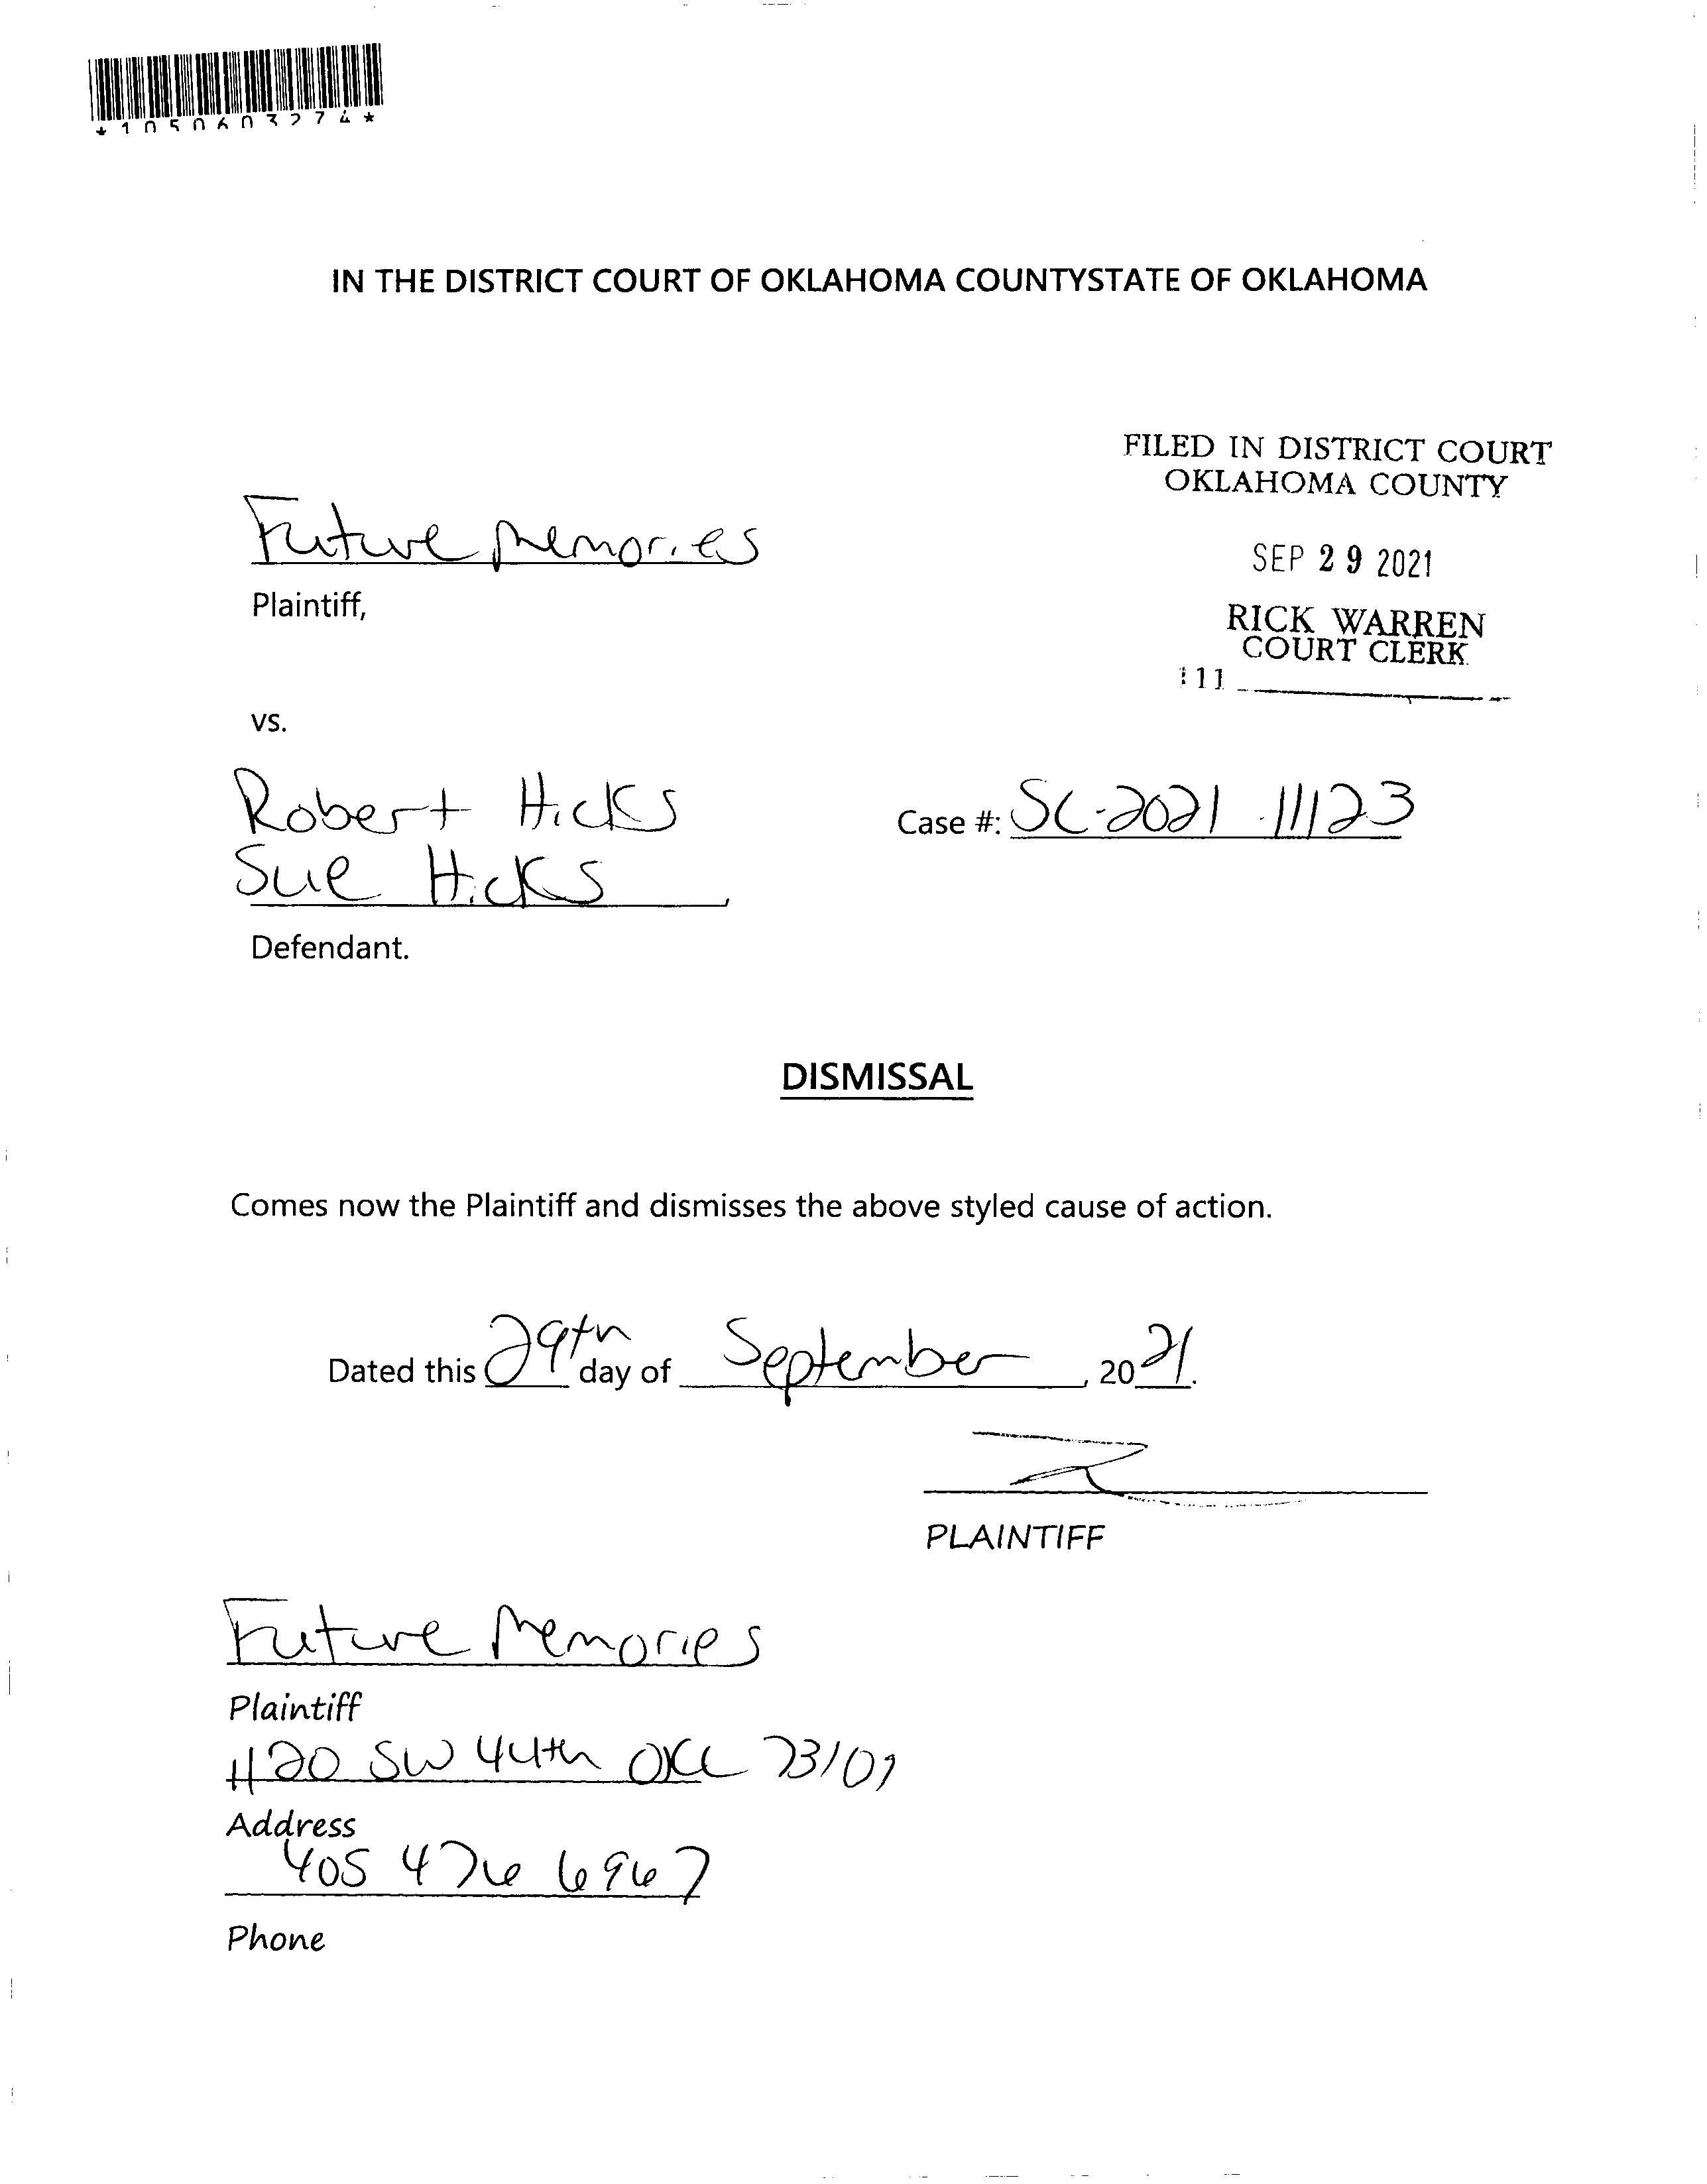 *1050603274*
IN THE DISTRICT COURT OF OKLAHOMA COUNTYSTATE OF OKLAHOMA
FILED IN DISTRICT COURT
OKLAHOMA COUNTY
SEP 29 2021
RICK WARREN
COURT CLERK
111
Future Memories
Plaintiff,
vs.
Robert Hicks
Sue Hicks
Case #: SC-2021-11123
Defendant.
DISMISSAL
Comes now the Plaintiff and dismisses the above styled cause of action.
Dated this 29th day of September, 2021.
PLAINTIFF
Future Memories
Plaintiff
1120 SW 44th OKC 73109
Address
405 476 6967
Phone